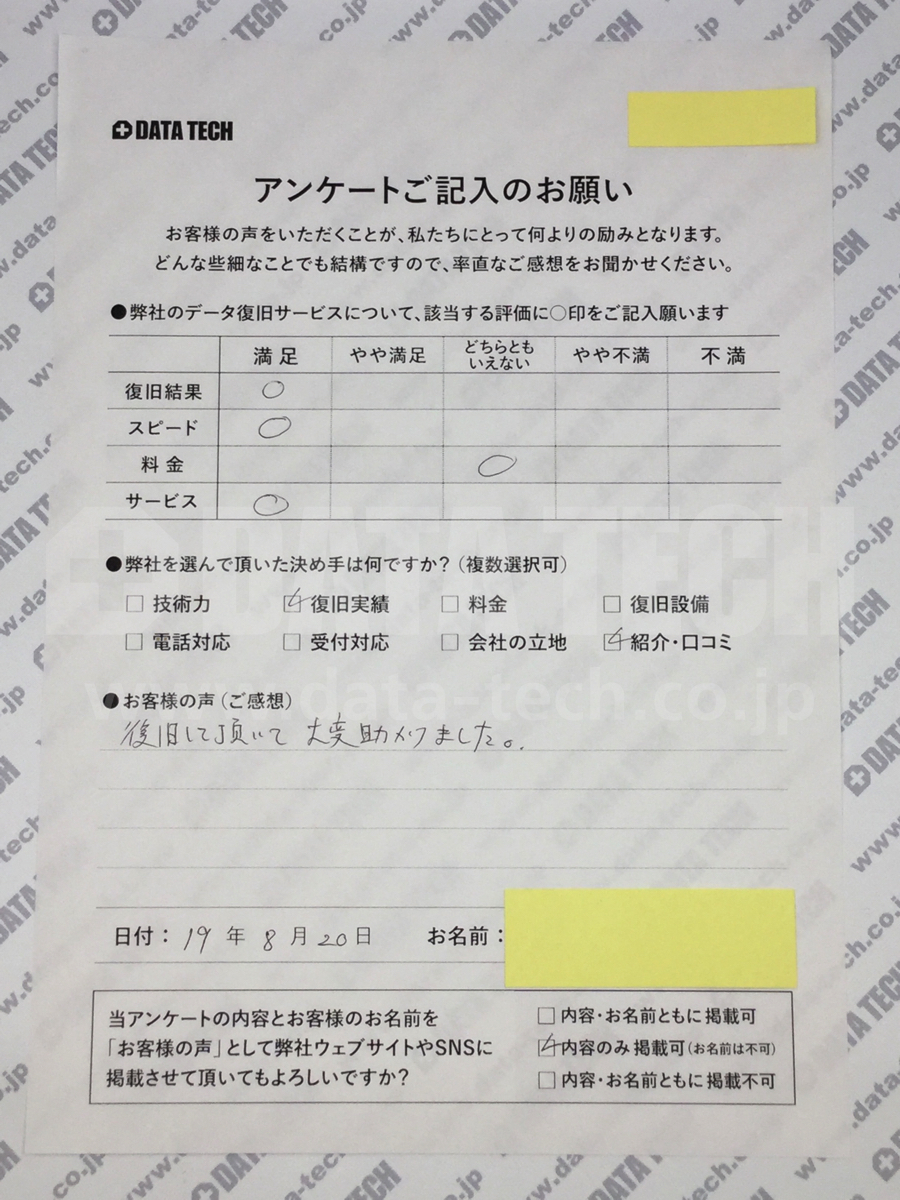 DATA TECH
アンケートご記入のお願い
お客様の声をいただくことが、私たちにとって何よりの励みとなります。
どんな些細なことでも結構ですので、率直なご感想をお聞かせください。
●弊社のデータ復旧サービスについて、該当する評価に○印をご記入願います
満足 やや満足 どちらとも いえない やや不満 不満
復旧結果 ○
スピード ○
料金 ○
サービス ○
●弊社を選んで頂いた決め手は何ですか?(複数選択可)
□ 技術力 ☑ 復旧実績 □ 料金 □ 復旧設備
□ 電話対応 □ 受付対応 □ 会社の立地 ☑ 紹介・口コミ
●お客様の声(ご感想)
復旧して頂いて 大変助かりました。
日付: 19 年 8 月 20 日 お名前:
当アンケートの内容とお客様のお名前を
「お客様の声」として弊社ウェブサイトやSNSに
掲載させて頂いてもよろしいですか?
□ 内容・お名前ともに 掲載可
☑ 内容のみ 掲載可(お名前は不可)
□ 内容・お名前ともに 掲載不可
DATA TECH
www.data-tech.co.jp